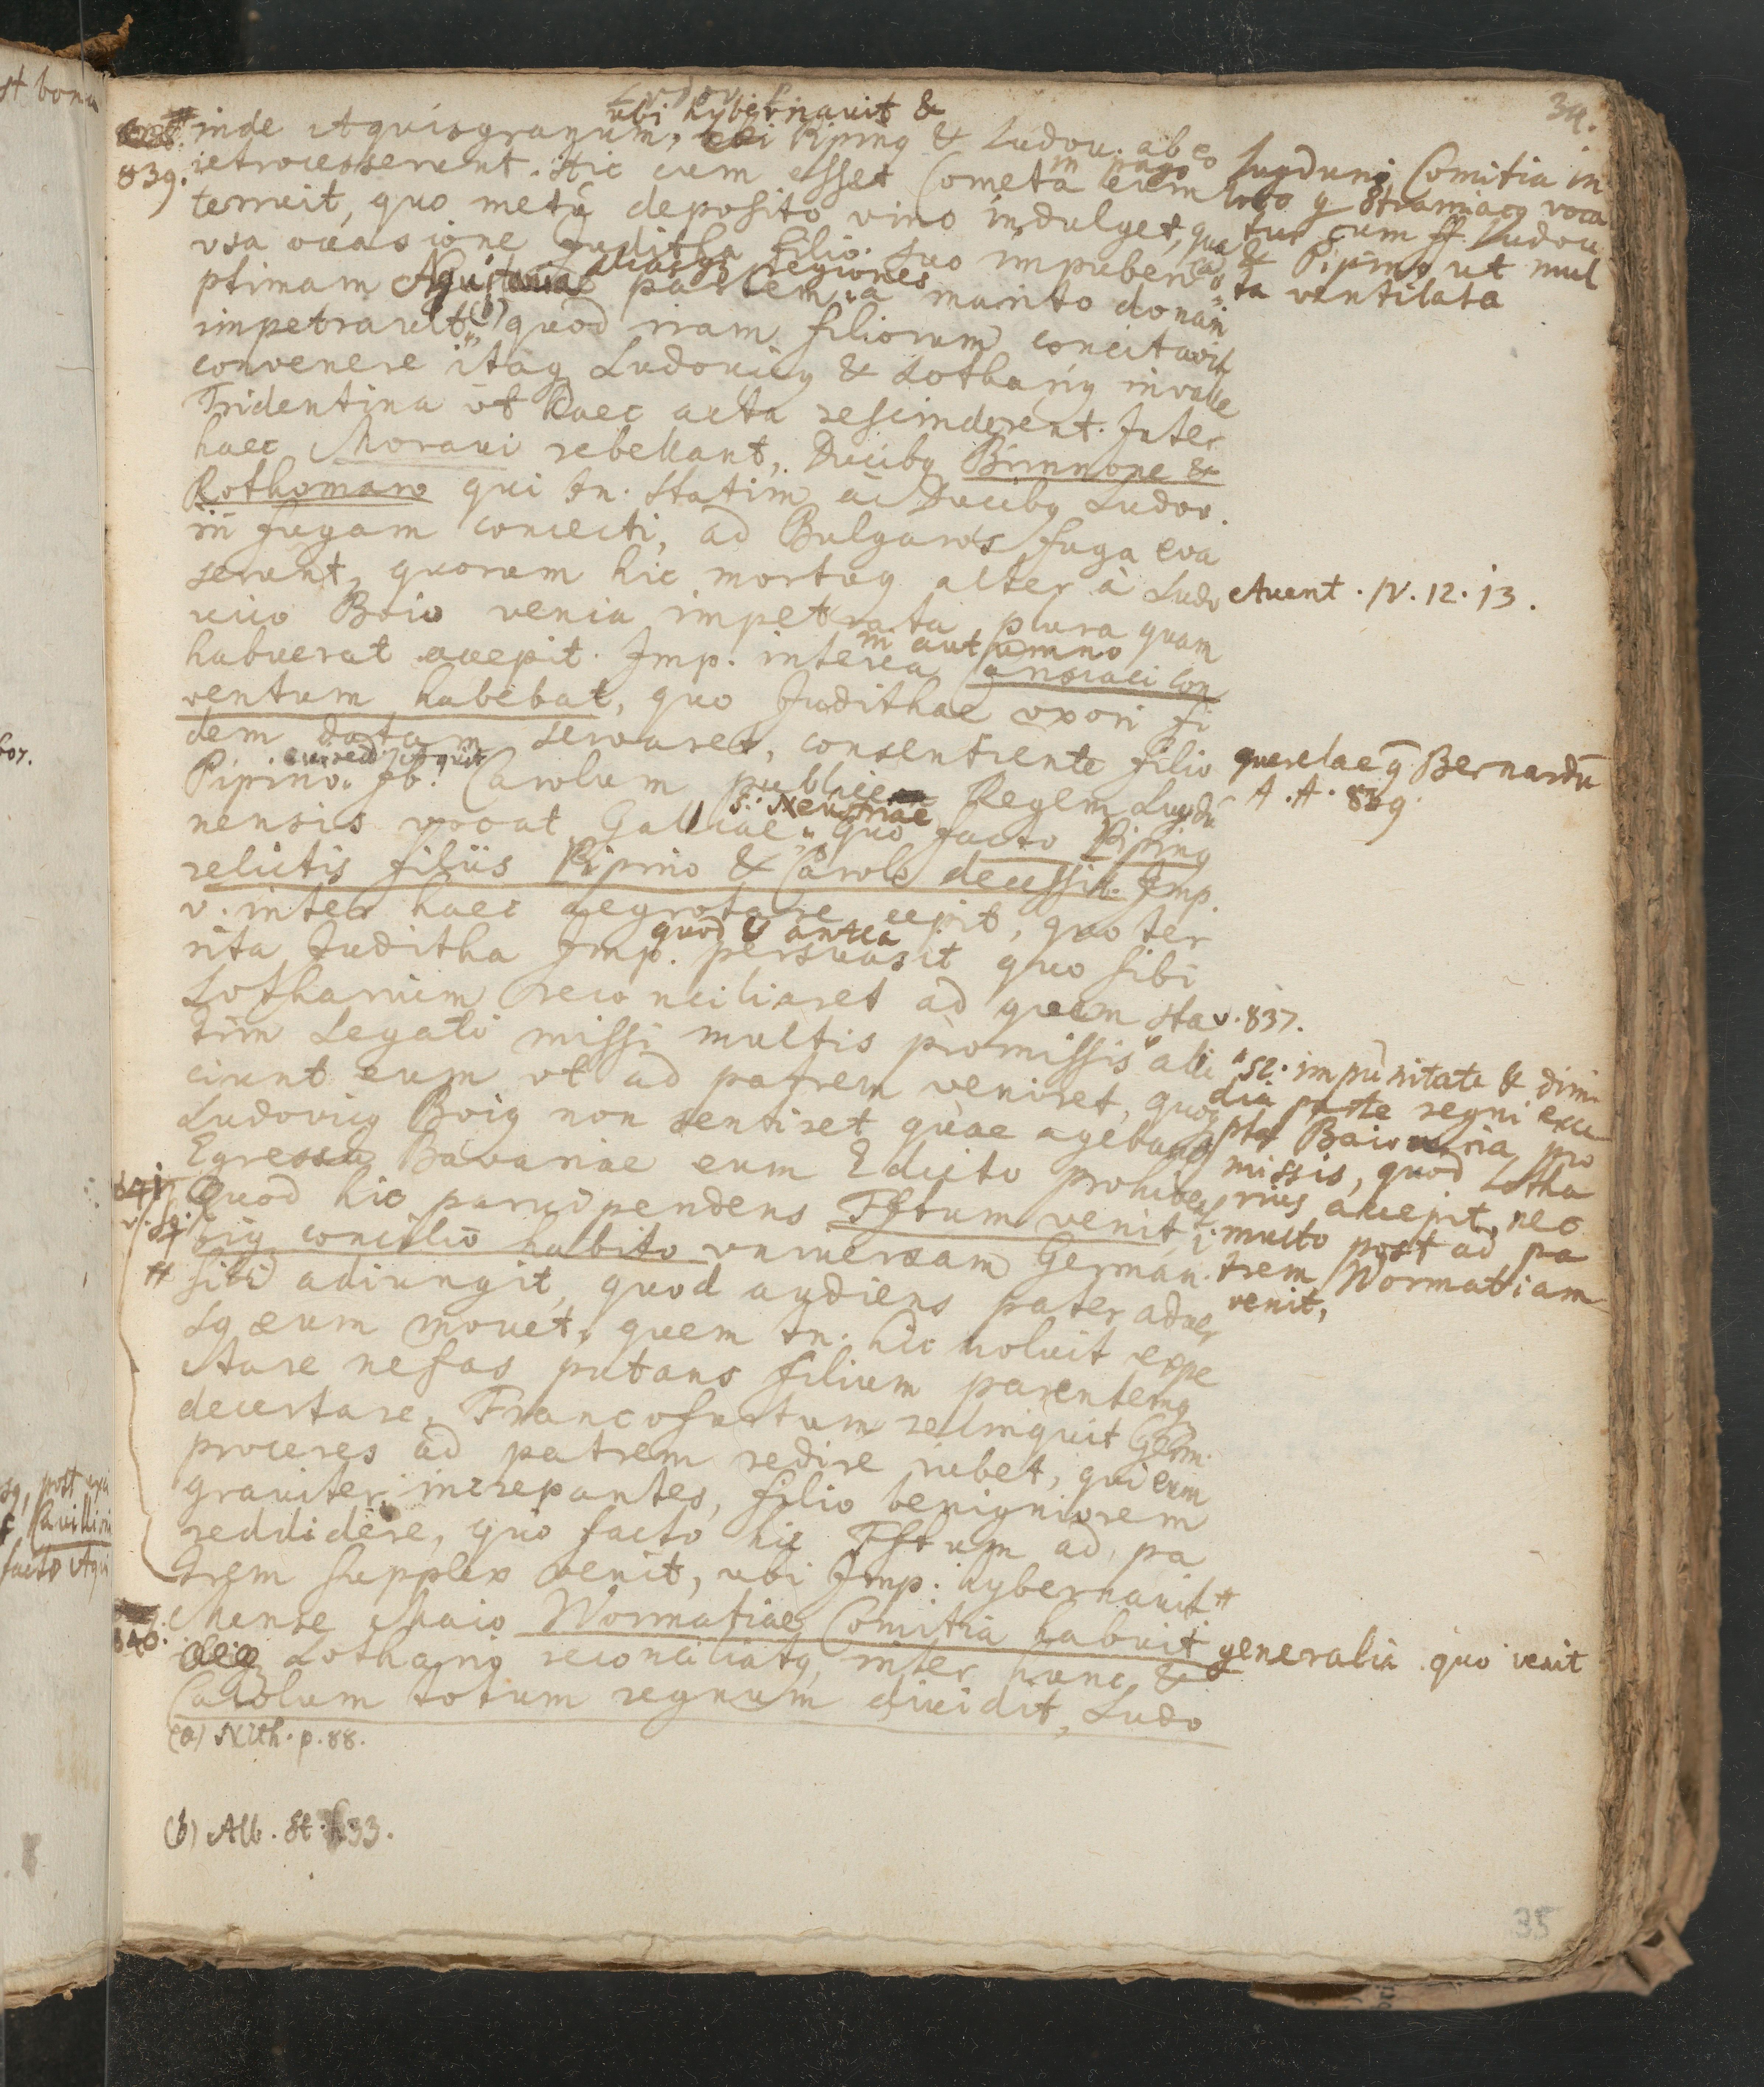 34.
ubi hybernauit &
inde Aquisgranum, Piping & Ludou. ab eo
839. retrocesserent. Hic cum esset Cometa eum
terruit, quo metu deposito vino indulget, qua
vsa occasione Juditha filio suo impuberi
aliasq regiones
ptimam partem a marito donari
impetrauit (b) quod iram filiorum concitavit
convenere itaq Ludouicq & Lotharig in valle
Tridentina vt haec acta rescinderent. Inter
haec Moraui rebellant, Ducibq Brinnone &
Rothomaro qui tn. statim a Ducibq Ludov.
in fugam coniecti, ad Bulgaros fuga eva
serunt, quorum hic mortuq alter à Ludo
uico Boio venia impetrata plura quam
in autumno
habuerat accepit. Imp. interea Cansiaci con
ventum habebat, quo Judithae vxori fi
dem datam servaret, consentiente filio
Pipino. Ib. Carolum publice Regem Lugdu
s. Neustriae
nensis vocat Galliae, quo facto Piping
relictis filiis Pipino & Carolo decessit. Imp.
v. inter haec aegrotare cepit, quo ter
quod & antea
rita Juditha Imp. persuasit quo sibi
Lotharium reconciliaret ad quem sta
tim Legati missi multis promissis alli
ciunt eum vt ad patrem veniret, quoq
Ludovicq Boiq non sentiret quae agebant
Egressu Bavariae eum Edicto prohibet
Quod hic parvipendens Fftum venit,
v. sq. concilio habito vniversam German.
# sibi adiungit, quod audiens pater adver
sq eum movet, quem tn. hic noluit expe
ctare nefas putans filium parentemq
decertare, Francofurtum relinquit Germ.
proceres ad patrem redire iubet, qui eum
graviter increpantes, filio benigniorem
reddidere, quo facto hic Fftum ad pa
trem supplex venit, ubi Imp. hybernauit #
840. Mense Maio Wormatiae Comitia habuit
Lothario reconciliatq, inter hunc &
Carolum totum regnum dividit, Ludo
(a) Nith. p. 88.
(b) Alb. St. 33.
Lugduni Comitia in
in pago
loco q Stramiacq voca
tur cum ff. Ludou.
& Pipino ut mul
ta ventilata
Avent. IV. 12. 13.
querelae q Bernardu
A. A. 839.
v. 837.
" sc. impunitate & dimi
dia parte regni exce
pta Baioaria pro
missis, quod Lotha
rius accepit, nec
multo post ad pa
trem Wormatiam
venit,
generalia quo venit
35